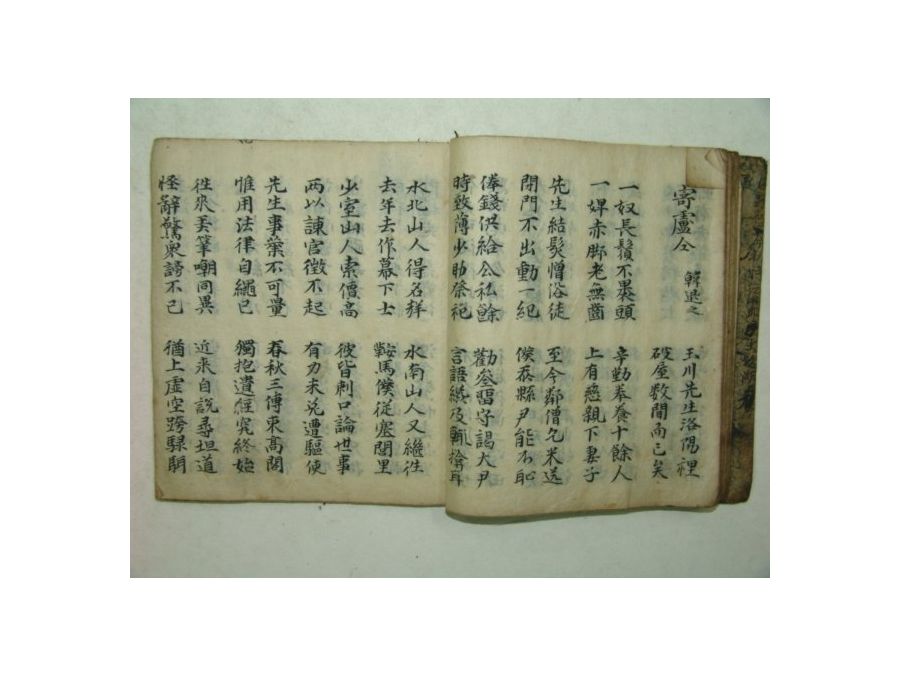 寄盧仝 韓退之
玉川先生洛陽裡
破屋數間而已矣
一奴長鬚不裹頭
一婢赤脚老無齒
辛勤奉養十餘人
上有慈親下妻子
先生結髮憎俗徒
閉門不出動一紀
至今鄰僧乞米送
僕忝縣尹能不恥
俸錢供給公私餘
時致薄少助祭祀
勸參留守謁大尹
言語纔及輒掩耳
水北山人得名聲
去年去作幕下士
水南山人又繼往
鞍馬僕從塞閭里
少室山人索價高
兩以諫官徵不起
彼皆刺口論世事
有力未免遭驅使
先生事業不可量
惟用法律自繩已
春秋三傳束高閣
獨抱遺經究終始
往來弄筆嘲同異
怪辭驚衆謗不已
近來自說尋坦道
猶上虛空跨騄駬